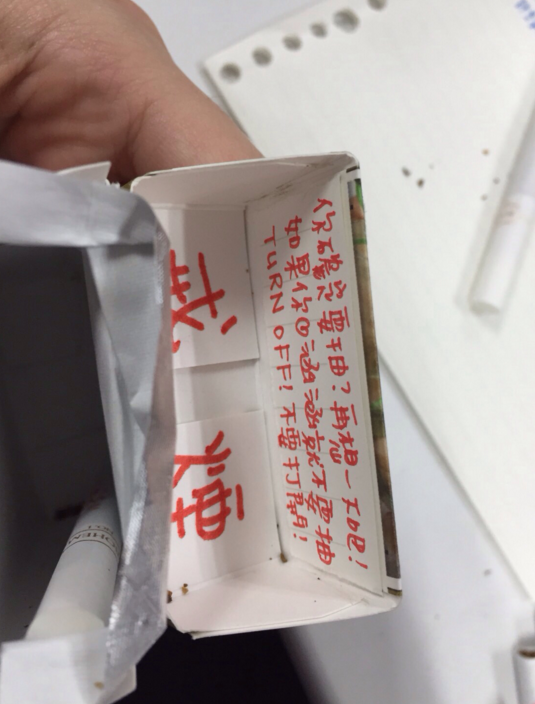 你確定要抽？再想一下吧！
如果你回涵涵就不要抽
TURN OFF! 不要打開！
戒
煙